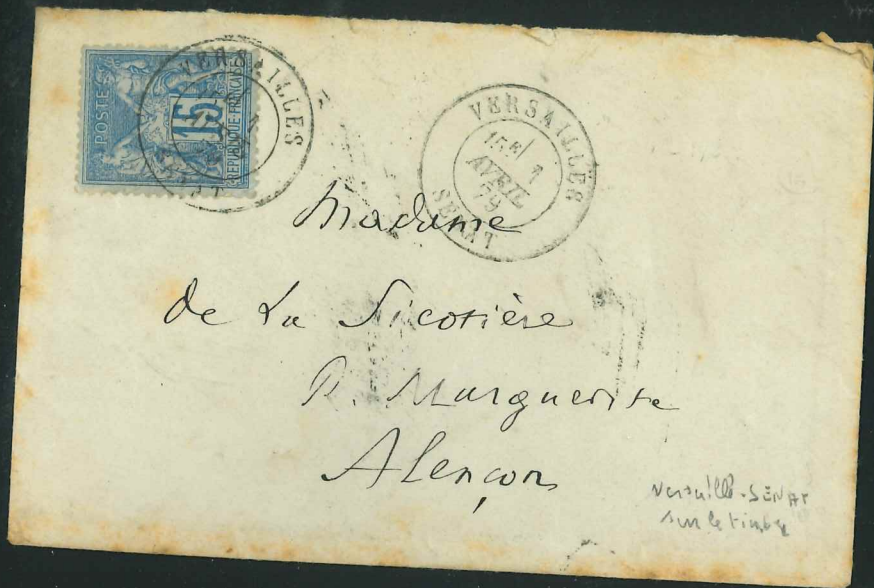 POSTES
15
REPUBLIQUE FRANCAISE
VERSAILLES
VERSAILLES
1
AVRIL
79
SENAT
Madame
de La Sicotière
R. Marguerite
Alençon
Versailles-SENAT
sur le timbre